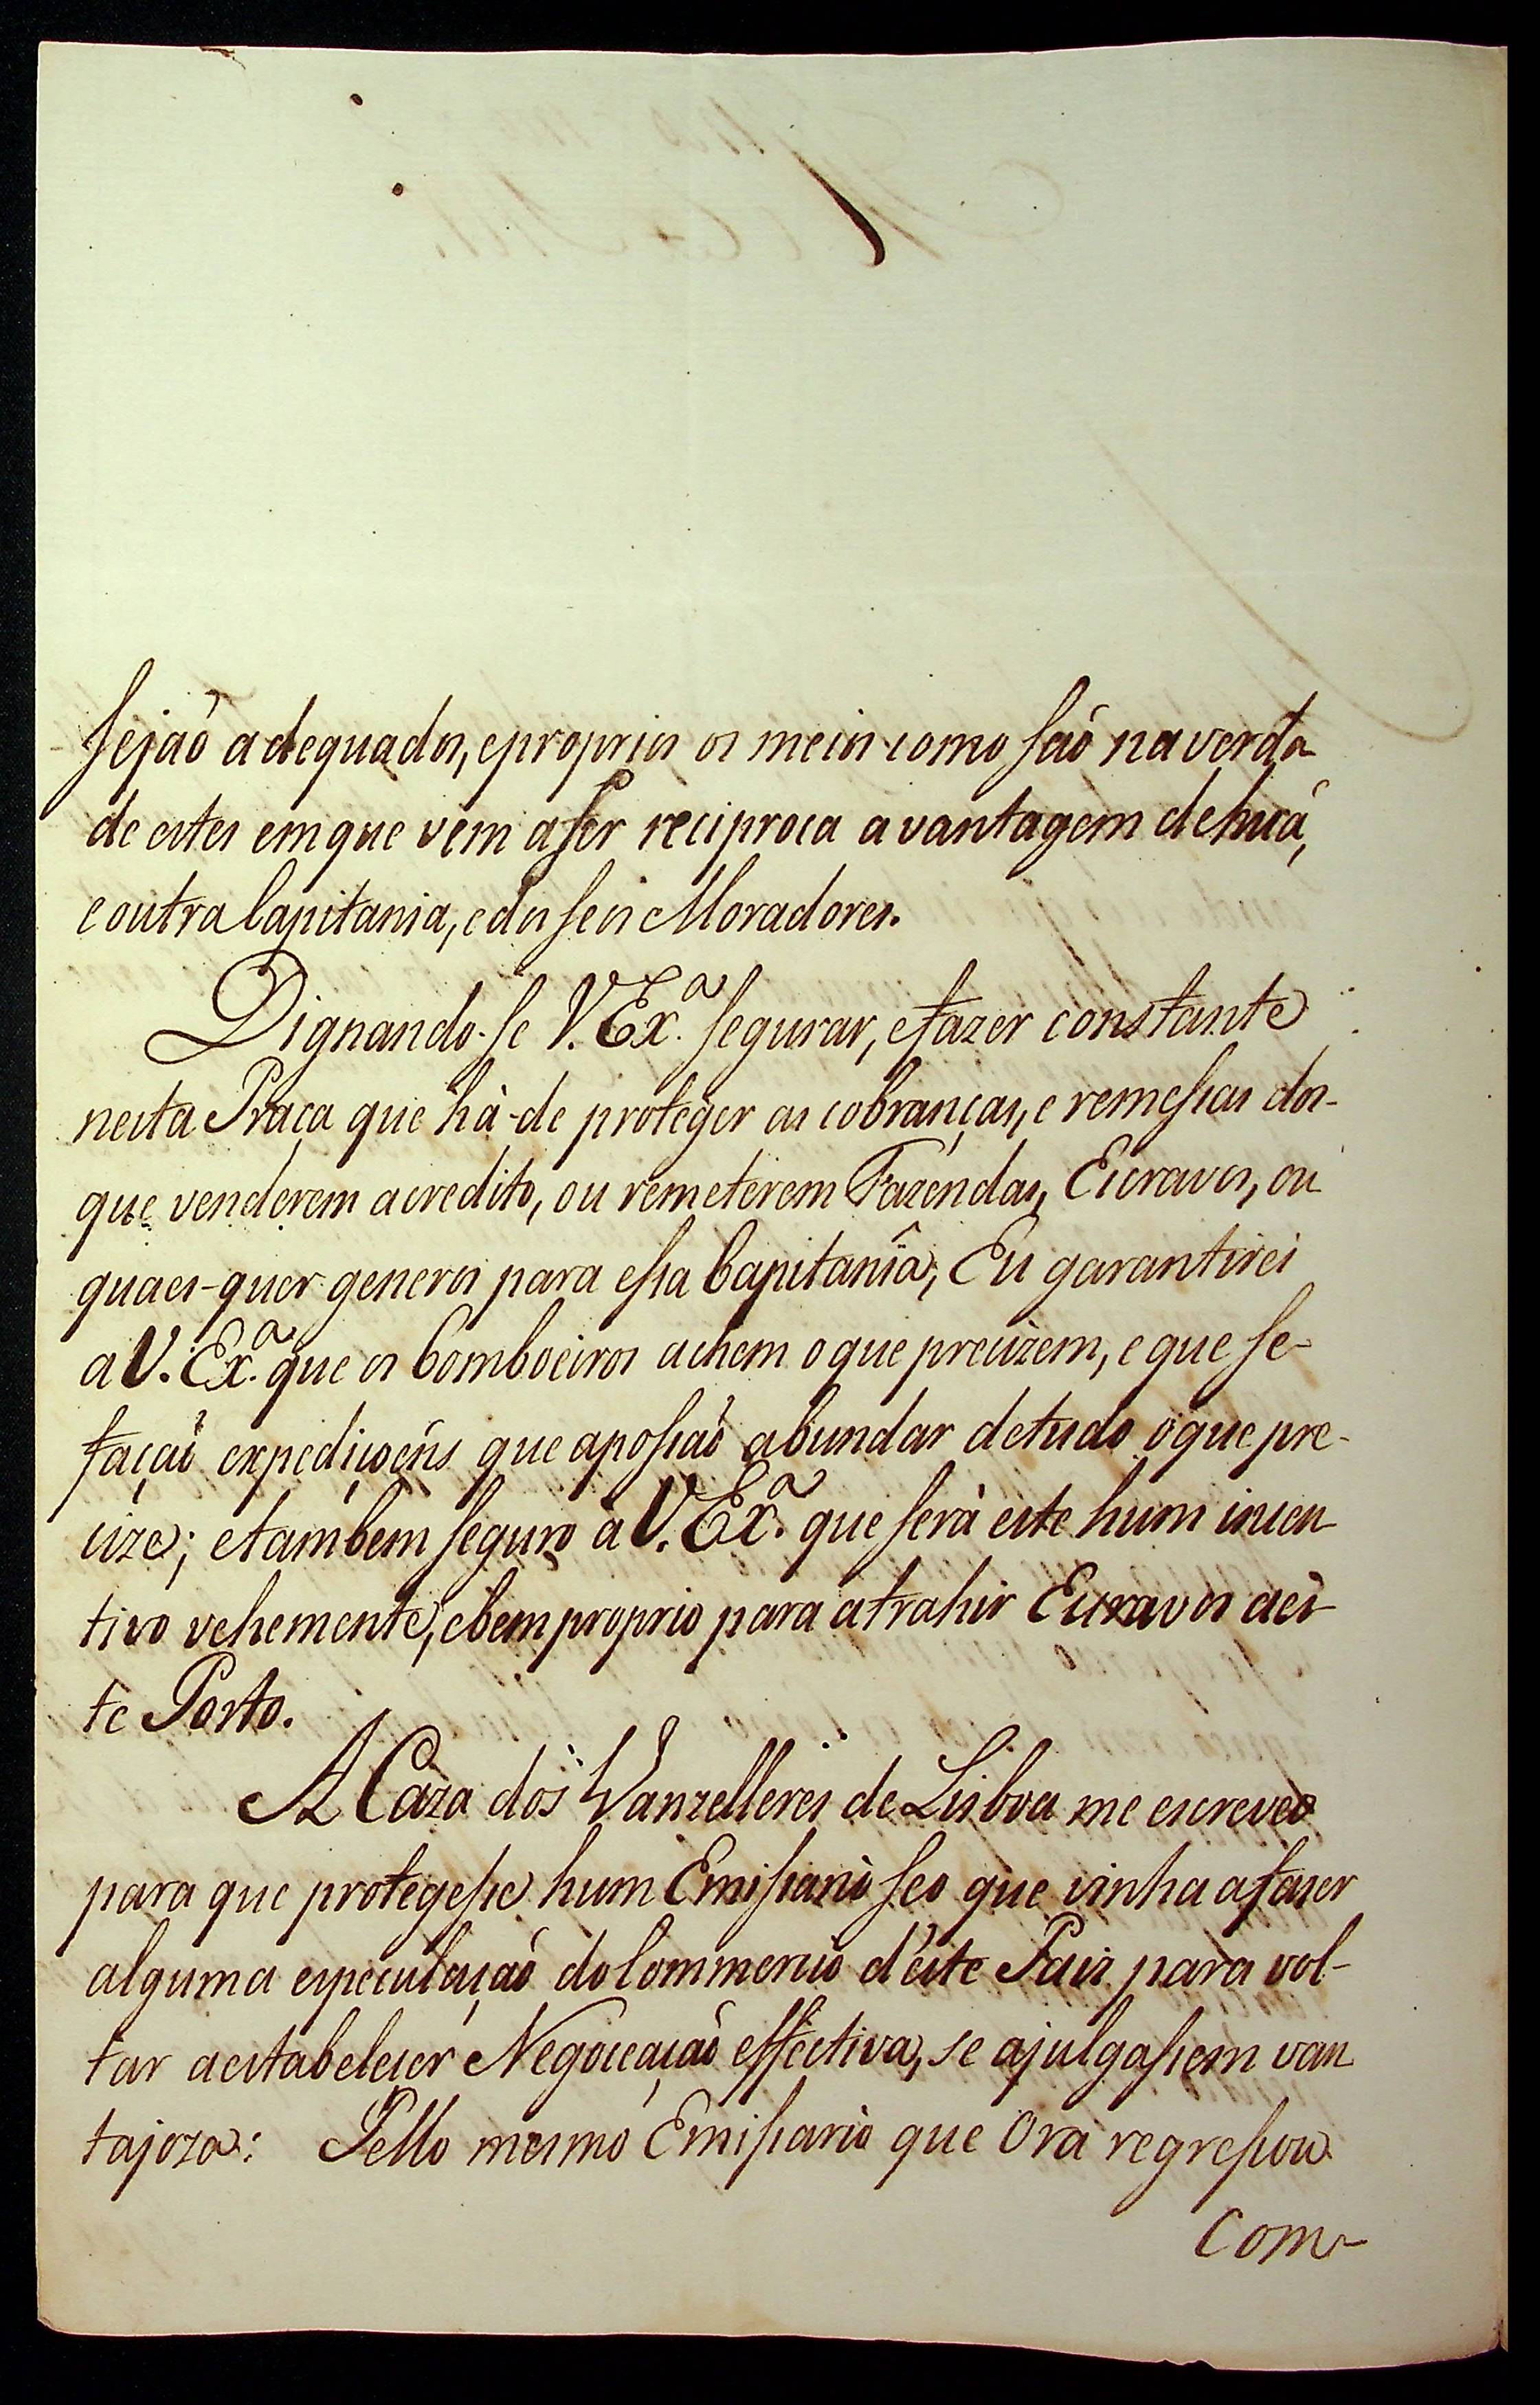 sejaõ adequados, e proprios os meios como saõ na verda
de estes em que vem a ser reciproca a vantagem de huã,
e outra Capitania, e dos seos Moradores.
Dignando-se V. Ex.ª segurar, e fazer constante
nesta Praça que hà-de proteger as cobranças, e remessas dos-
que venderem a credito, ou remeterem Fazendas, Escravos, ou
quaes-quer generos para essa Capitanîa; Eu garantirei
a V. Ex.ª que os Comboeiros achem o que precizem, e que se-
façaõ expediçoẽns que a possaõ abundar de tudo o que pre-
cize; e tambem seguro a V. Ex.ª que serà este hum incen
tivo vehemente, e bem proprio para atrahir Escravos a es-
te Porto.
A Caza dos Vanzelleres de Lisboa me escreveo
para que protegesse hum Emissario seo que vinha a fazer
alguma especulaçaõ do Commercio d'este Paiz para vol-
tar a estabelecer Negociaçaõ effectiva, se a julgassem van
tajoza: Pello mesmo Emissario que Ora regressou
Com-